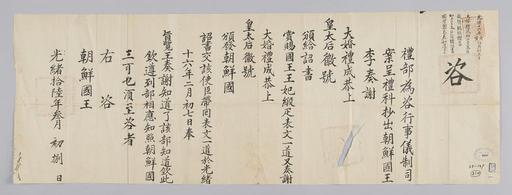 禮部為咨行事儀制司
案呈禮科抄出朝鮮國王
李奏謝
大婚禮成恭上
皇太后徽號
頒給詔書
賞賜國王王妃緞疋表文一道又奏謝
大婚禮成恭上
皇太后徽號
頒發朝鮮國
詔書交該使臣帶同表文一道於光緒
十六年二月初七日奉
旨覽王奏謝知道了該部知道欽此
欽遵到部相應知照朝鮮國
王可也須至咨者
右咨
朝鮮國王
光緒拾陸年叁月初捌日
咨